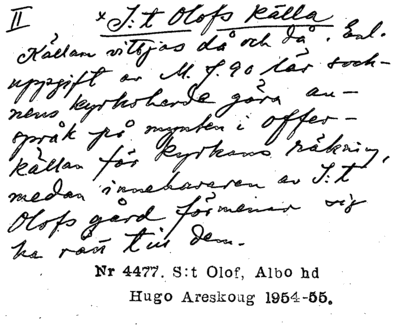 II
x S:t Olofs källa
Källan vitsjas då och då. Enl.
uppgift av M. J. 90 lär sock-
nens kyrkoherde göra an-
språk på mynten i offer-
källan för kyrkans räkning,
medan innehavaren av S:t
Olofs gård förmenar sig
ha rätt till dem.
Nr 4477. S:t Olof, Albo hd
Hugo Areskoug 1954-55.